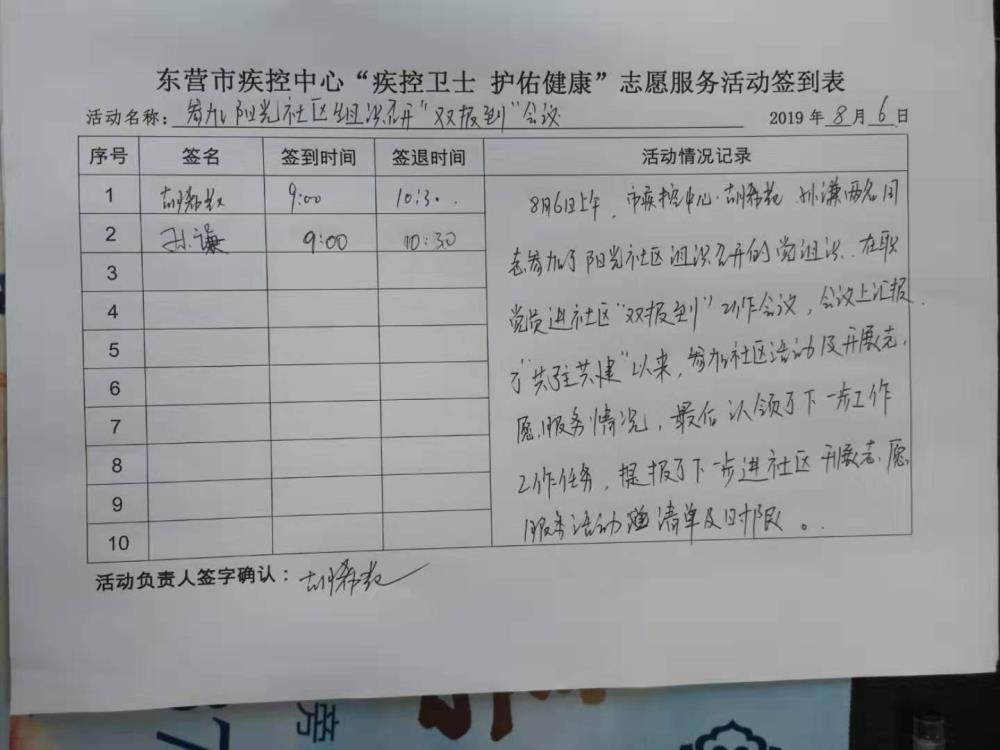 东营市疾控中心“疾控卫士 护佑健康”志愿服务活动签到表
活动名称：参加阳光社区组织召开“双报到”会议 2019年8月6日
序号 签名 签到时间 签退时间 活动情况记录
1 胡希 9:00 10:30
2 孙谦 9:00 10:30
3
4
5
6
7
8
9
10
8月6日上午，市疾控中心胡希 孙谦两名同
志参加了阳光社区组织召开的党组织、在职
党员进社区“双报到”工作会议，会议上汇报
了“共驻共建”以来，参加社区活动及开展志
愿服务情况，最后认领了下一步工作
工作任务，提报了下一步进社区开展志愿
服务活动 清单及时限。
活动负责人签字确认：胡希
房
7